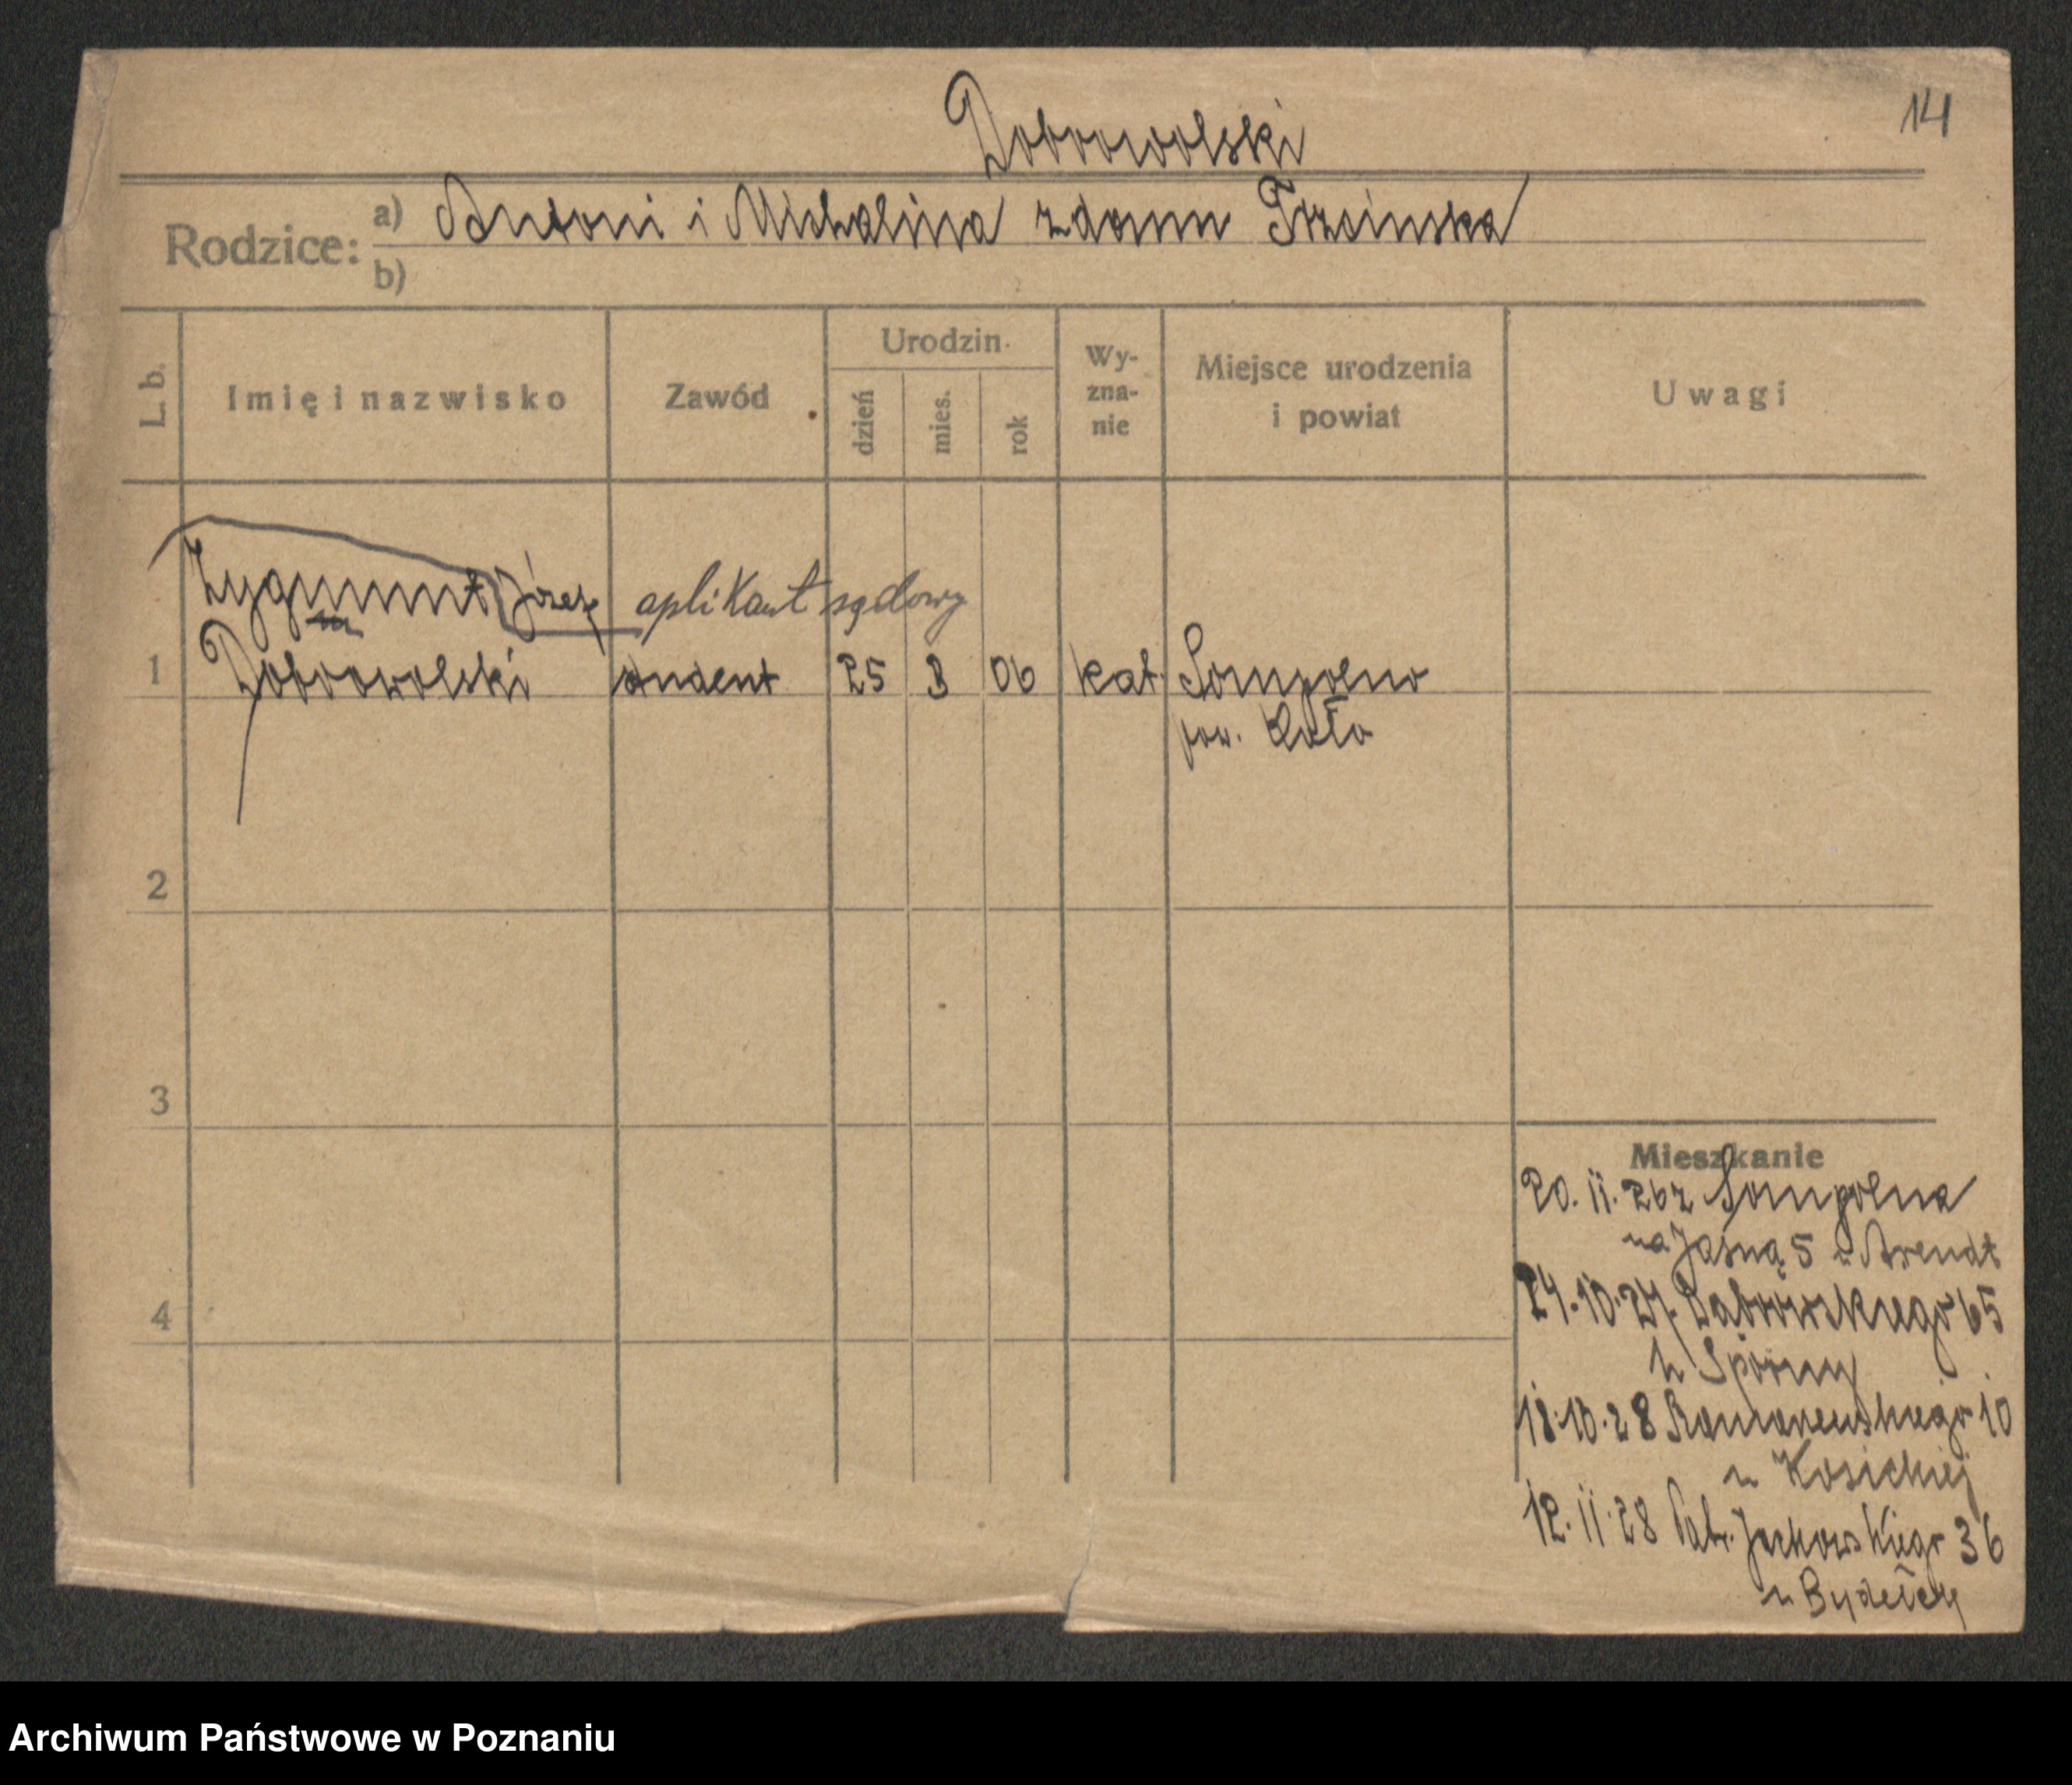 14
Dobrowolski
Rodzice: a) Antoni i Michalina z domu Trzcińska
b)
L. b.
Imię i nazwisko
Zawód
Urodzin.
dzień
mies.
rok
Wy-
zna-
nie
Miejsce urodzenia
i powiat
Uwagi
Zygmunt Józef aplikant sądowy
1 Dobrowolski student 25 3 06 kat. Sompolno
pow. Koło
2
3
4
Mieszkanie
20. 11. 26 z Sompolna
na Jasną 5 u Arendt
24.10.27. Dąbrowskiego 65
u Sporny
18.10.28 10
u Kosickiej
12.11.28 Patr. Jackowskiego 36
u
Archiwum Państwowe w Poznaniu